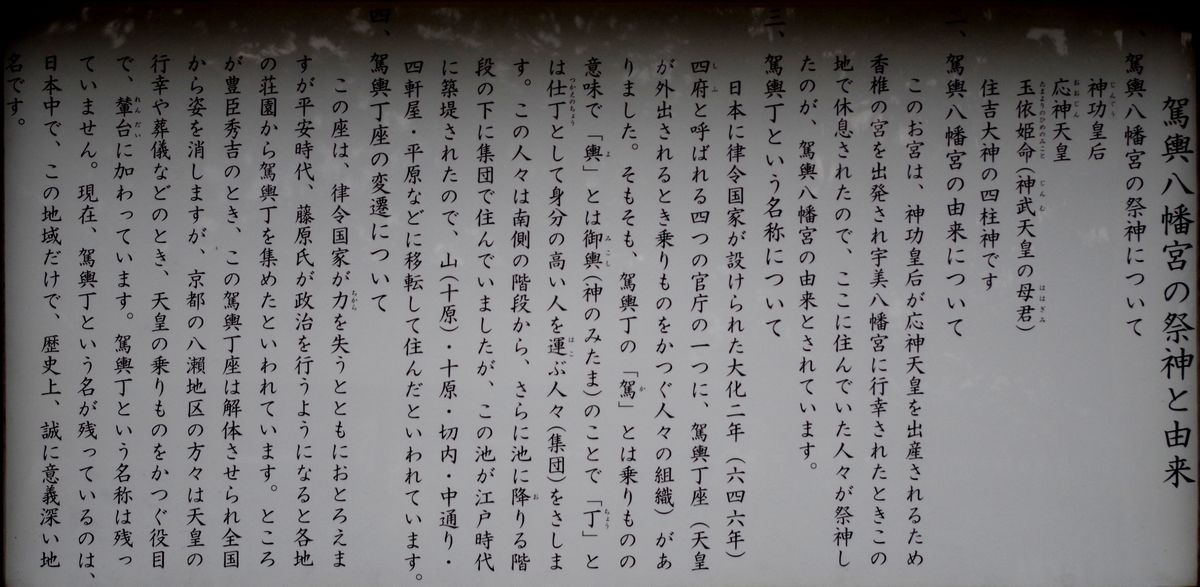 駕輿八幡宮の祭神と由来
一、駕輿八幡宮の祭神について
神功皇后
応神天皇
玉依姫命(神武天皇の母君)
住吉大神の四柱神です
二、駕輿八幡宮の由来について
このお宮は、神功皇后が応神天皇を出産されるため
香椎の宮を出発され宇美八幡宮に行幸されたときこの
地で休息されたので、ここに住んでいた人々が祭神し
たのが、駕輿八幡宮の由来とされています。
三、駕輿丁という名称について
日本に律令国家が設けられた大化二年(六四六年)
四府と呼ばれる四つの官庁の一つに、駕輿丁座(天皇
が外出されるとき乗りものをかつぐ人々の組織)があ
りました。そもそも、駕輿丁の「駕」とは乗りものの
意味で「輿」とは御輿(神のみたま)のことで「丁」と
は仕丁として身分の高い人を運ぶ人々(集団)をさしま
す。この人々は南側の階段から、さらに池に降りる階
段の下に集団で住んでいましたが、この池が江戸時代
に築堤されたので、山(十原)・十原・切内・中通り・
四軒屋・平原などに移転して住んだといわれています。
四、駕輿丁座の変遷について
この座は、律令国家が力を失うとともにおとろえま
すが平安時代、藤原氏が政治を行うようになると各地
の荘園から駕輿丁を集めたといわれています。ところ
が豊臣秀吉のとき、この駕輿丁座は解体させられ全国
から姿を消しますが、京都の八瀬地区の方々は天皇の
行幸や葬儀などのとき、天皇の乗りものをかつぐ役目
で、輦台に加わっています。駕輿丁という名称は残っ
ていません。現在、駕輿丁という名が残っているのは、
日本中で、この地域だけで、歴史上、誠に意義深い地
名です。